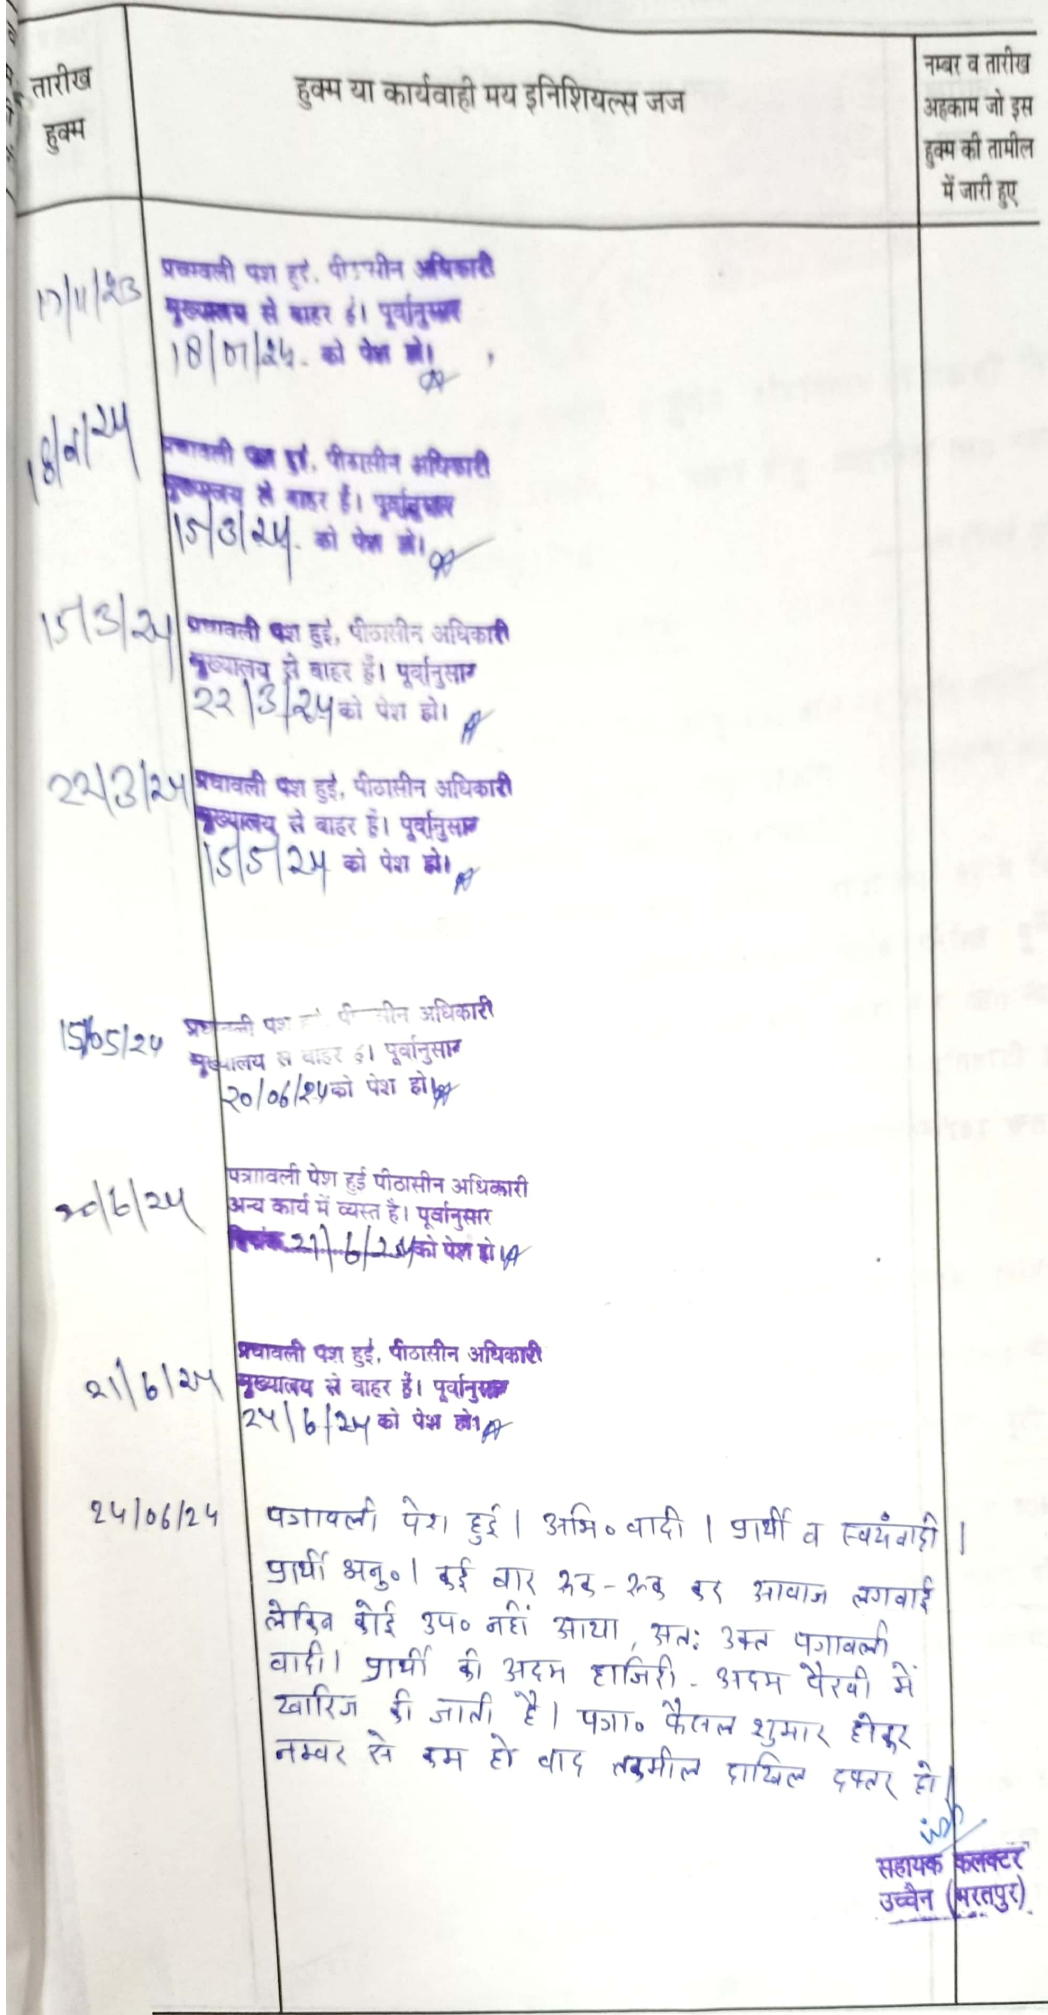 तारीख
हुक्म
हुक्म या कार्यवाही मय इनिशियल्स जज
नम्बर व तारीख
अहकाम जो इस
हुक्म की तामील
में जारी हुए
17/11/23
पत्रावली पेश हुई, पीठासीन अधिकारी
मुख्यालय से बाहर है। पूर्वानुसार
18/01/24 को पेश हो।
18/1/24
पत्रावली पेश हुई, पीठासीन अधिकारी
मुख्यालय से बाहर हैं। पूर्वानुसार
15/3/24 को पेश हो।
15/3/24
पत्रावली पेश हुई, पीठासीन अधिकारी
मुख्यालय से बाहर हैं। पूर्वानुसार
22/3/24 को पेश हो।
22/3/24
पत्रावली पेश हुई, पीठासीन अधिकारी
मुख्यालय से बाहर हैं। पूर्वानुसार
15/5/24 को पेश हो।
15/05/24
पत्रावली पेश हुई पीठासीन अधिकारी
मुख्यालय से बाहर है। पूर्वानुसार
20/06/24 को पेश हो।
20/6/24
पत्राावली पेश हुई पीठासीन अधिकारी
अन्य कार्य में व्यस्त है। पूर्वानुसार
दिनांक 21/6/24 को पेश हो।
21/6/24
पत्रावली पेश हुई, पीठासीन अधिकारी
मुख्यालय से बाहर हैं। पूर्वानुसार
24/6/24 को पेश हो।
24/06/24
पत्रावली पेश हुई। अभि० वादी। प्रार्थी व स्वयं वादी।
प्रार्थी अनु०। कई बार रूक-रूक कर आवाज लगवाई
लेकिन कोई उप० नहीं आया, अतः उक्त पत्रावली
वादी। प्रार्थी की अदम हाजिरी - अदम पैरवी में
खारिज की जाती है। पत्रा० फैसल शुमार होकर
नम्बर से कम हो बाद तकमील दाखिल दफ्तर हो।
सहायक कलक्टर
उच्चैन (भरतपुर)